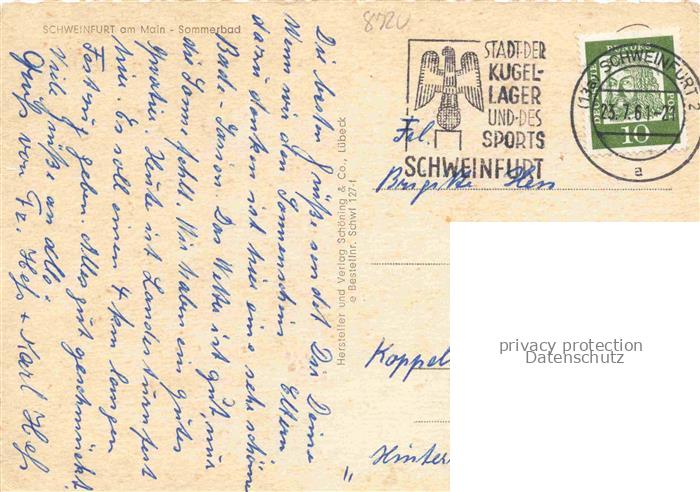 SCHWEINFURT am Main - Sommerbad
8720
STADT DER
KUGEL-
LAGER
UND DES
SPORTS
SCHWEINFURT
(13a) SCHWEINFURT 2
23.7.61-21
a
DEUTSCHE BUNDESPOST
10
Die besten Grüße sendet Dir Deine
Eltern
Wenn wir den Sonnenschein
dazu denken ist hier eine sehr schöne
Bade-Saison. Das Wetter ist gut, nur
die Sonne fehlt. Wir haben ein gutes
Quartier. Heute ist Landesturnfest
hier. Es soll einen 4 km langen
Festzug geben. Alles gut geschmückt.
Viele Grüße an alle
Gruß von Fr. Heß + Karl Heß
Hersteller und Verlag Schöning & Co., Lübeck
e Bestellnr. Schwl 127-f
Frl.
Brigitte Hess
Koppel
Hinter
privacy protection
Datenschutz